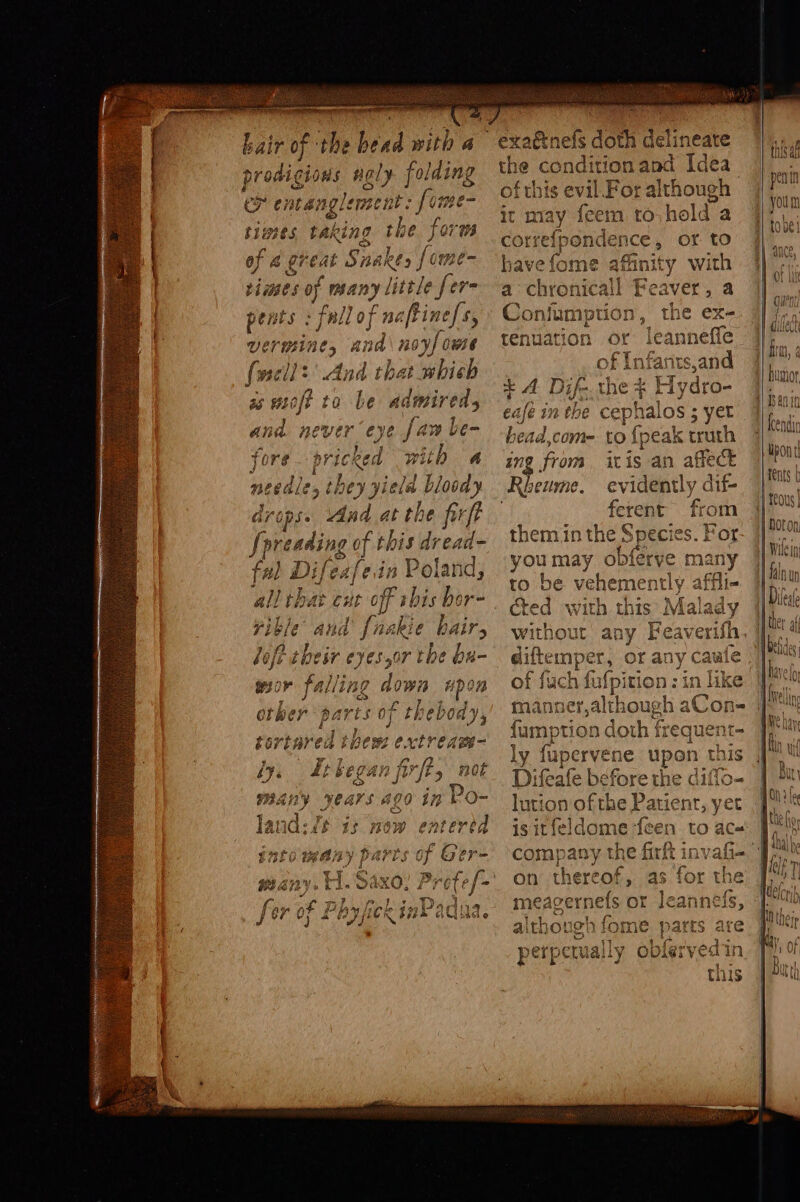 (2)
hair of the head with a
prodigious ugly folding
& entanglement: ſome-
times taking the form
of a great Snake, ſome-
times of many little ſer-
pents : full of naſtineſs,
vermine, and noyſome
ſmell: And that which
is moſt to be admired,
and never eye ſaw be-
fore pricked with a
needle, they yield bloody
drops. And at the firſt
ſpreading of this dread-
ful Diſeaſe in Poland,
all that cut off this hor-
rible and ſnakie hair,
loſt their eyes, or the hu-
mor falling down upon
other parts of the body,
tortured them extream-
ly. It began firſt, not
many years ago in Po-
land; It is now entered
into many parts of Ger-
many. H. Saxo, Profeſ-
ſor of Phyſick in Padua.
exactneſs doth delineate
the condition and Idea
of this evil. For although
it may ſeem to hold a
correſpondence, or to
have ſome affinity with
a chronicall Feaver, a
Conſumption, the ex-
tenuation or leanneſſe
of Infants, and
‡ A Diſ- the ‡ Hydro-
eaſe in the cephalos ; yet
head, com- to ſpeak truth
ing from it is an affect
Rheume. evidently dif-
ferent from
them in the Species. For
you may obſerve many
to be vehemently affli-
cted with this Malady
without any Feaveriſh
diſtemper, or any cauſe
of ſuch ſuſpition : in like
manner, although a Con-
ſumption doth frequent-
ly ſupervene upon this
Diſeaſe before the diſſo-
lution of the Patient, yet
is it ſeldome ſeen to ac-
company the firſt invaſi-
on thereof, as for the
meagerneſs or leanneſs,
although ſome parts are
perpetually obſerved in
this